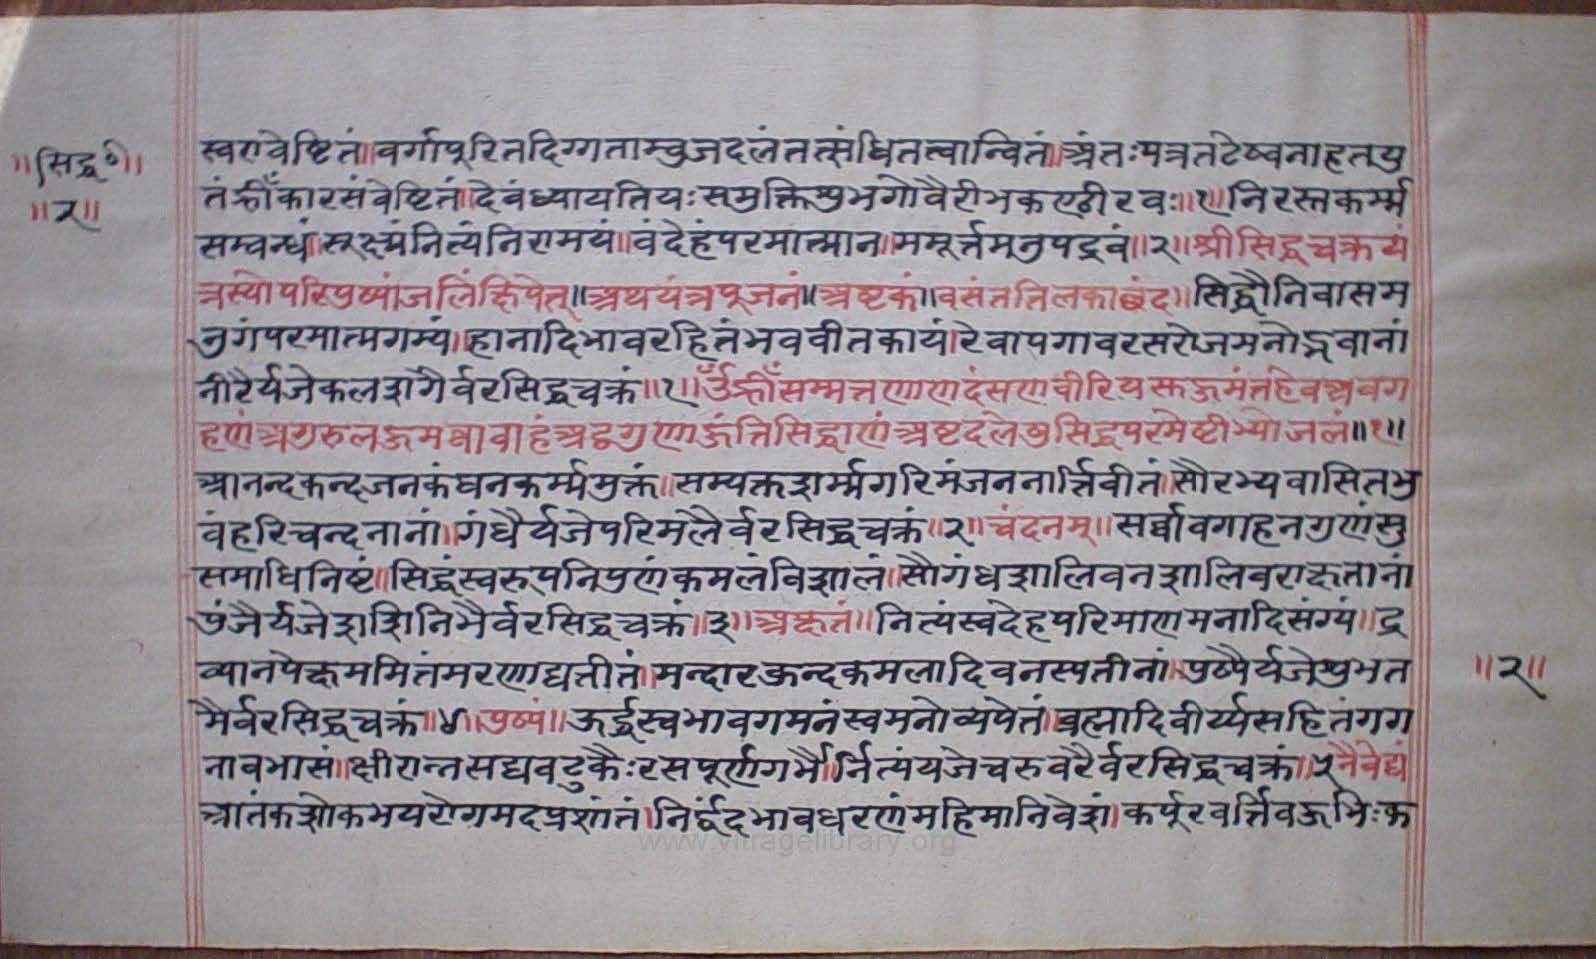 ॥सिद्ध०॥
॥२॥
स्वरावेष्टितं॥वर्गापूरितदिग्गताम्वुजदलंतत्संधितत्वान्वितं॥अंतःपत्रतटेष्वनाहतयु
तंह्रीँकारसंवेष्टितं॥देवंध्यायतियःसमुक्तिशुभगोवैरीभकण्ठीरवः॥१॥निरस्तकर्म्म
सम्वन्धं॥सूक्ष्यंनित्यंनिरामयं॥वंदेहंपरमात्मान॥ममूर्त्तमनुपद्रवं॥२॥श्रीसिद्धचक्रयं
त्रस्योपरिपुष्पांजलिंक्षिपेत्॥अथयंत्रपूजनं॥अष्टकं॥वसंततिलकाछंद॥सिद्धौनिवासम
नुगंपरमात्मगम्यं॥हानादिभावरहितंभववीतकायं॥रेवापगावरसरोजमनोद्भवानां
नीरैर्यजेकलशगैर्वरसिद्धचक्रं॥१॥ॐह्रीँसम्मत्तणाणदंसणवीरियसुहुमंतहेवअवग
हणंअगुरुलहुमव्वावाहंअट्ठगुणाहुंतिसिद्धाणंअष्टदलेषुसिद्धपरमेष्टीभ्योजलं॥१॥
आनन्दकन्दजनकंघनकर्म्ममुक्तं॥सम्यक्तशर्म्मगरिमंजननार्त्तिवीतं॥सौरभ्यवासितभु
वंहरिचन्दनानां॥गंधैर्यजेपरिमलैर्वरसिद्धचक्रं॥२॥चंदनम्॥सर्व्वावगाहनगुणंसु
समाधिनिष्टं॥सिद्धंस्वरूपनिपुणंकमलंविशालं॥सौगंधशालिवनशालिवराक्षतानां
पुंजैर्यजेशशिनिभैर्वरसिद्धचक्रं॥३॥अक्षतं॥नित्यंस्वदेहपरिमाणमनादिसंग्यं॥द्र
व्यानपेक्षममितंमरणाद्यतीतं॥मन्दारकुन्दकमलादिवनस्पतीनां॥पुष्पैर्यजेशुभत
मैर्वरसिद्धचक्रं॥४॥पुष्पं॥ऊर्द्धस्वभावगमनंस्वमनोव्यपेतं॥व्रह्मादिवीर्य्यसहितंगग
नावभासं॥क्षीरान्नसद्यवटुकैःरसपूर्णगर्भै॥र्नित्यंयजेचरुवरैर्वरसिद्धचक्रं॥५नैवेद्यं
आतंकशोकभयरोगमदप्रशांतं॥निर्द्वंदभावधरणंमहिमानिवेशं॥कर्पूरवर्त्तिवहुभिःक
॥२॥
www.vitragelibrary.org